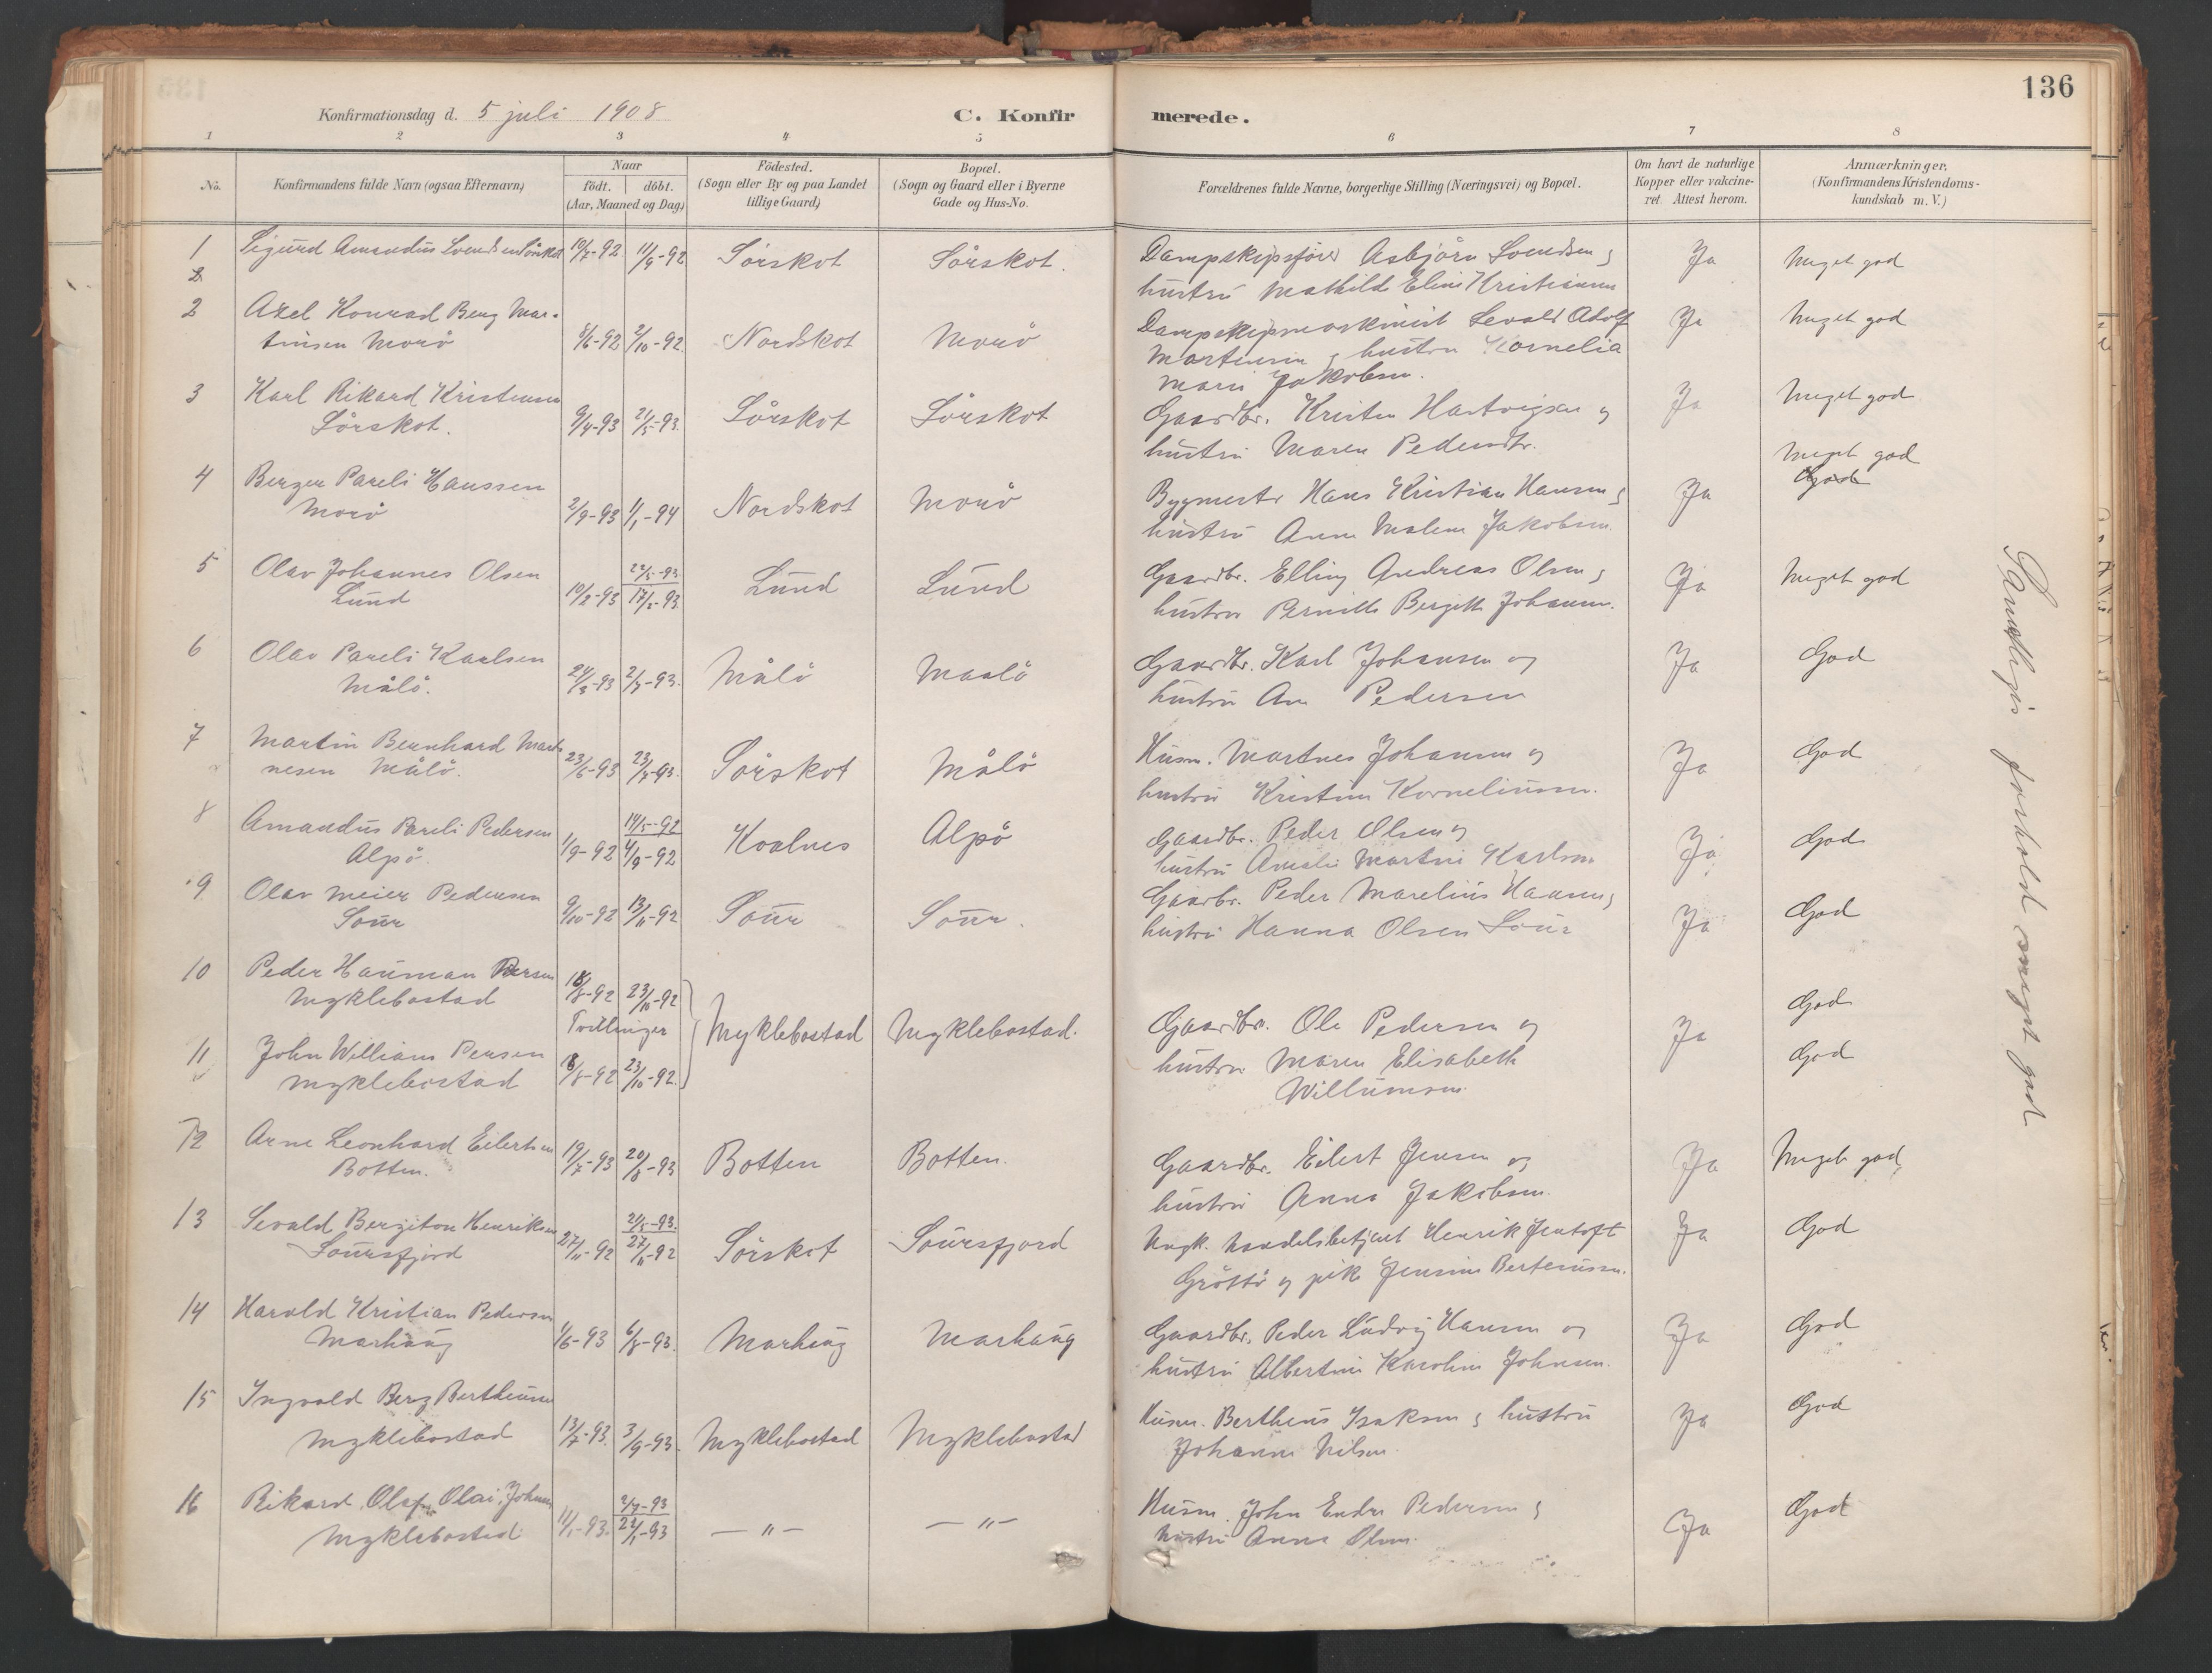 136
Konfirmationsdag d. 5 juli 1908
C. Konfirmerede.
1 2 3 4 5 6 7 8
No.
Konfirmandens fulde Navn (ogsaa Efternavn)
Naar
født. døbt.
(Aar, Maaned og Dag)
Fødested.
(Sogn eller By og paa Landet
tillige Gaard)
Bopæl.
(Sogn og Gaard eller i Byerne
Gade og Hus-No.
Forældrenes fulde Navne, borgerlige Stilling (Næringsvei) og Bopæl.
Om havt de naturlige
Kopper eller vakcine-
ret. Attest herom.
Anmærkninger.
(Konfirmandens Kristendoms-
kundskab m. V.)
1 Sigurd Amandus Svendsen 10/7-92 11/9-92 Sørskot Sørskot. Dampskipsfører Asbjørn Svendsen og Ja Meget god
hustru Mathilde Eline Kristiansen
2 Axel Konrad Berg Mar- 8/6-92 2/10-92 Nordskot Morø Dampskipsmaskinist Sevald Adolf Ja Meget god
tinsen Morø Martinsen og hustru Kornelia
Marie Jakobsen.
3 Karl Rikard Kristensen 9/4-93 21/5-93. Sørskot Sørskot Gaardbr. Kristen Hartvigsen og Ja Meget god
Sørskot. hustru Maren Pedersdtr.
4 Berger Pareli Hanssen 2/9-93 1/1-94 Nordskot Morø Bygmester Hans Kristian Hansen og Ja Meget god
God
Morø hustru Anne Malene Jakobsen
5 Olav Johannes Olsen 10/2-93 22/5-93 17/2-93 Lund Lund Gaardbr. Elling Andreas Olsen og Ja Meget god
Lund hustru Pernille Bergitte Johansen.
6 Olav Pareli Karlsen 24/3-93 2/7-93. Målø Maalø Gaardbr. Karl Johansen og Ja God
Målø. hustru Ane Pedersen
7 Martin Bernhard Mart- 23/6-93 23/7-93. Sørskot Målø Husm. Martnes Johansen og Ja God
nesen Målø. hustru Kristine Korneliussen.
8 Amandus Pareli Pedersen 1/9-92 14/5-92 4/9-92 Kvalnes Alpø Gaardbr. Peder Olsen og Ja God
Alpø. hustru Amalie Martine Karlsen
9 Olav Meier Pedersen 9/10-92 13/11-92 Sour Sour. Gaardbr. Peder Marelius Hansen og Ja God
Sour hustru Hanna Olsen Sour
10 Peder Hauman Persen 18/8-92 23/10-92 Myklebostad Myklebostad. Gaardbr. Ole Pedersen og Ja God
Myklebostad Tvillinger hustru Maren Elisabeth
Willumsen.
11 John William Persen 18/8-92 23/10-92. God
Myklebostad
12 Arne Leonhard Eilertsen 19/7-93 20/8-93 Botten Botten. Gaardbr. Eilert Jensen og Ja Meget god
Botten. hustru Anna Jakobsen.
13 Sevald Bergiton Henriksen 27/11-92 21/5-93. 27/11-92 Sørskot Soursfjord Ungk. handelsbetjent Henrik Jentoft Ja God
Soursfjord Grøttø og pike Jensine Berteussen.
14 Harald Kristian Pedersen 1/6-93 6/8-93. Marhaug Marhaug Gaardbr. Peder Ludvig Hansen og Ja God
Marhaug hustru Albertine Karoline Johnsen.
15 Ingvald Berg Bertheussen 13/7-93. 3/9-93. Myklebostad Myklebostad Husm. Bertheus Isaksen og hustru Ja God
Myklebostad Johanne Nilsen.
16 Rikard Olaf Olai Johnsen 11/1-93. 2/7-93 22/1-93 — " — — " — Husm. John Endre Pedersen og Ja God
Myklebostad hustru Anna Olsen.
Samtliges forhold meget god